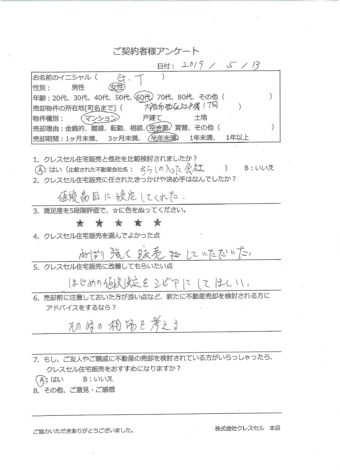 ご契約者様アンケート
日付: 2019 / 5 / 13
お名前のイニシャル ( G.T )
性別: 男性 女性
年齢: 20代、30代、40代、50代、60代、70代、80代、その他 ( )
売却物件の所在地【町名まで】 (
物件種別: マンション 戸建て 土地
売却理由: 金銭的、離婚、転勤、相続、空き家、買替、その他 ( )
売却期間: 1ヶ月未満、 3ヶ月未満、 半年未満、 1年未満、 1年以上
1. クレスセル住宅販売と他社を比較検討されましたか?
A: はい (比較された不動産会社名: ちらしの入った会社 ) B: いいえ
2. クレスセル住宅販売に任されたきっかけや決め手はなんでしたか?
値段高目に設定してくれた
3. 満足度を5段階評価で、☆に色をぬってください。
★ ★ ★ ★ ★
4. クレスセル住宅販売を選んでよかった点
ねばり強く販売していただいた。
5. クレスセル住宅販売に改善してもらいたい点
はじめの値段設定をシビアにしてほしい。
6. 売却前に注意しておいた方が良い点など、新たに不動産売却を検討される方に
アドバイスをするなら?
その時の相場を考える
7. もし、ご友人やご親戚に不動産の売却を検討されている方がいらっしゃったら、
クレスセル住宅販売をおすすめになりますか?
A: はい B: いいえ
8. その他、ご意見・ご感想
ご協力いただきありがとうございました。 株式会社クレスセル 本店